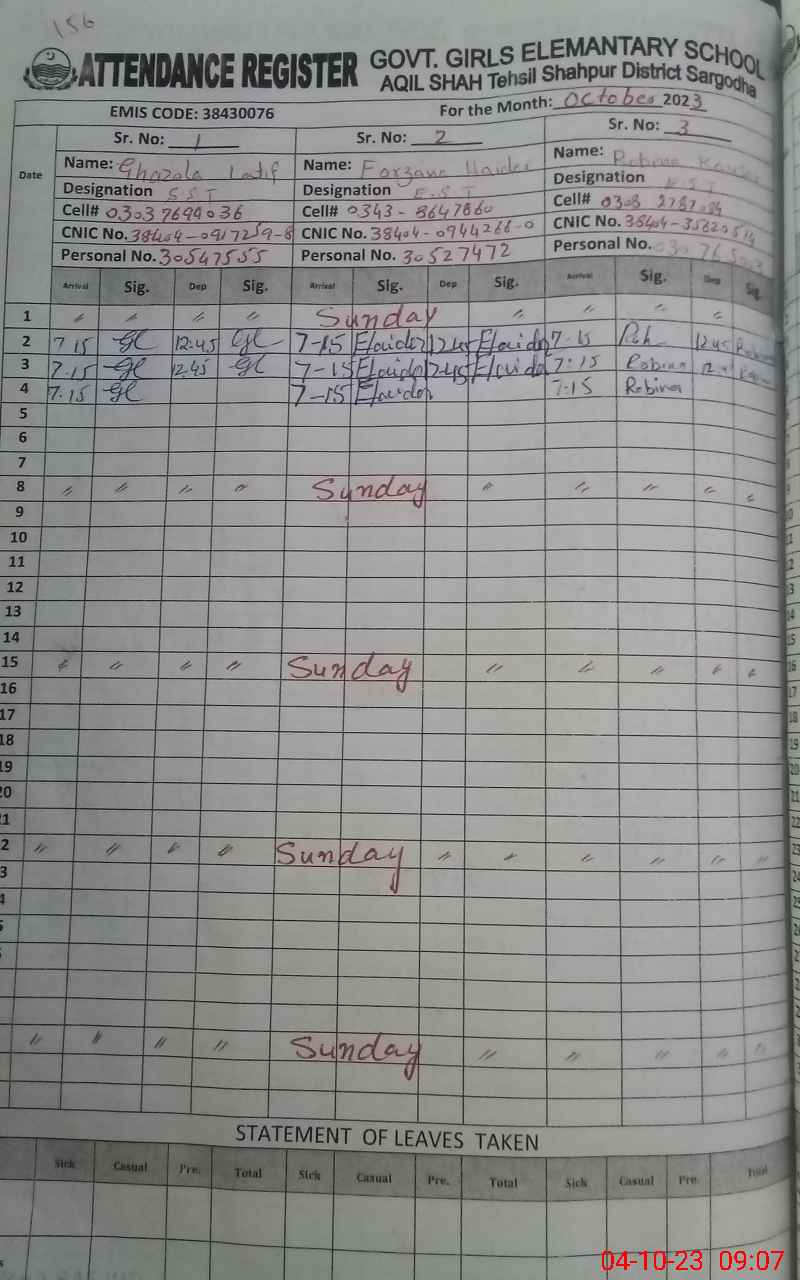 156
ATTENDANCE REGISTER GOVT. GIRLS ELEMANTARY SCHOOL
AQIL SHAH Tehsil Shahpur District Sargodha
EMIS CODE: 38430076 For the Month: October 2023
Date Sr. No: 1 Sr. No: 2 Sr. No: 3
Name: Ghazala Latif Name: Farzana Haider Name: Robina
Designation SST Designation E.S.T Designation E.S.T
Cell# 03037694036 Cell# 0343-8647860 Cell# 0303
CNIC No. 38404-0917259-8 CNIC No. 38404-0944266-0 CNIC No. 38404-
Personal No. 30547555 Personal No. 30527472 Personal No.
Arrival Sig. Dep Sig. Arrival Sig. Dep Sig. Arrival Sig. Dep Sig.
1 〃 〃 〃 〃 Sunday 〃 〃 〃 〃 〃
2 7.15 12:45 7-15 1245 7-15 1245
3 7.15 12.45 7-15 1245 7:15 Robina
4 7.15 7-15 7.15 Robina
5
6
7
8 〃 〃 〃 〃 Sunday 〃 〃 〃 〃 〃
9
10
11
12
13
14
15 〃 〃 〃 〃 Sunday 〃 〃 〃 〃 〃
16
17
18
19
20
21
2 〃 〃 〃 〃 Sunday 〃 〃 〃 〃 〃 〃
3
4
〃 〃 〃 〃 Sunday 〃 〃 〃 〃 〃
STATEMENT OF LEAVES TAKEN
Sick Casual Pre. Total Sick Casual Pre. Total Sick Casual Pre. Total
04-10-23 09:07